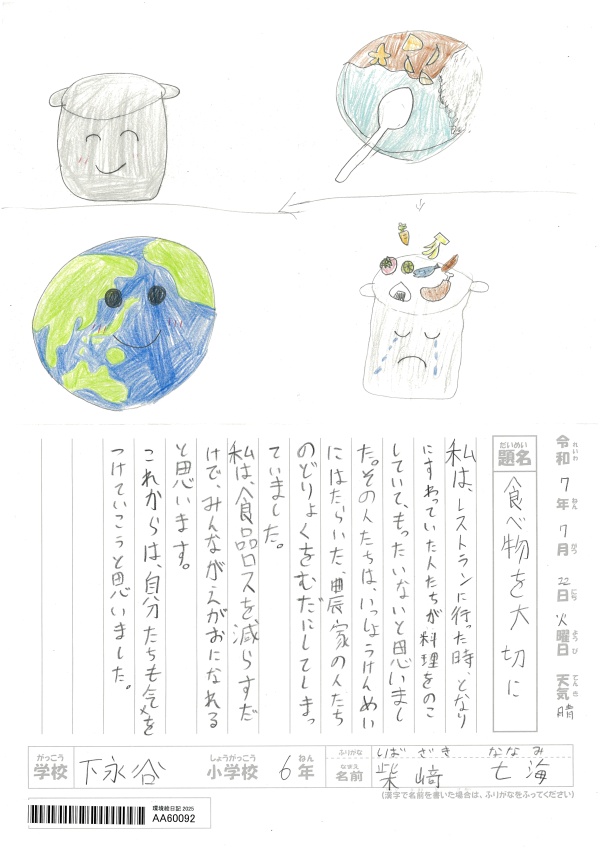 令和7年7月22日火曜日 天気 晴
れいわ ねん がつ にち ようび てんき
だいめい
題名 食べ物を大切に
私は、レストランに行った時、となり
にすわっていた人たちが料理をのこ
していて、もったいないと思いまし
た。その人たちは、いっしょうけんめい
にはたらいた、農家の人たち
のどりょくをむだにしてしまっ
ていました。
私は、食品ロスを減らすだ
けで、みんながえがおになれる
と思います。
これからは、自分たちも気を
つけていこうと思いました。
がっこう しょうがっこう ねん
学校 下永谷 小学校 6年
ふりがな しばざき ななみ
なまえ
名前 柴﨑 七海
(漢字で名前を書いた場合は、ふりがなをふってください)
環境絵日記 2025
AA60092